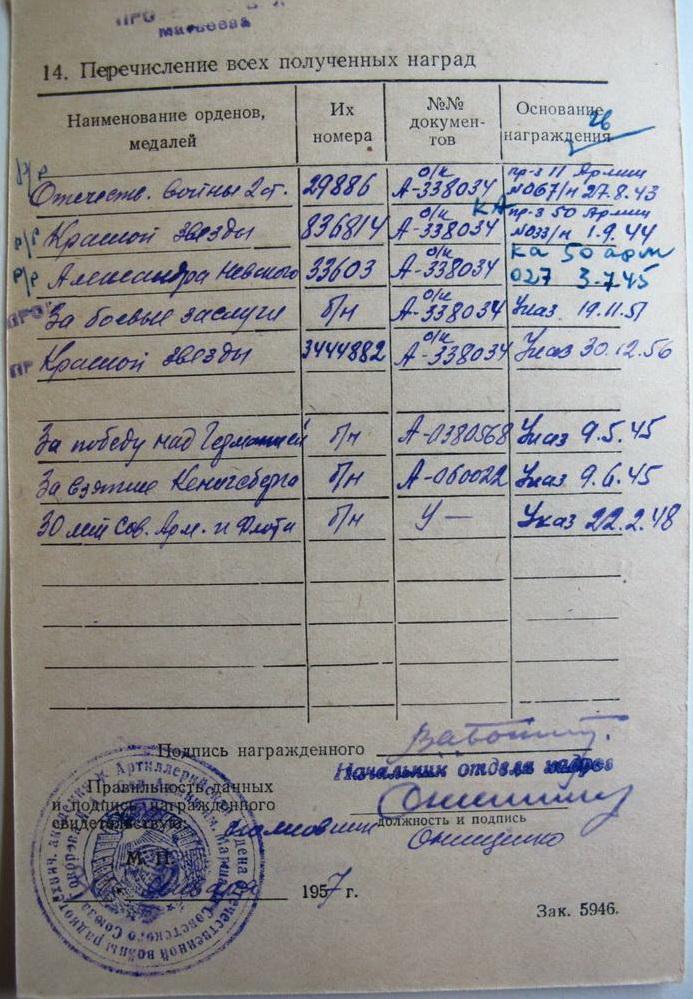 Матвеева
14. Перечисление всех полученных наград
Наименование орденов, медалей
Их номера
№№ документов
Основание награждения
Отечеств. войны 2 ст. 29886 о/к А-338034 пр-з 11 Армии №067/н 27.8.43
р/р Красной звезды 836814 о/к А-338034 пр-з 50 Армии №033/н 1.9.44
р/р Александра Невского 33603 о/к А-338034 КА 50 арм 027 3.7.45
За боевые заслуги б/н о/к А-338034 Указ 19.11.51
Красной звезды 3444882 о/к А-338034 Указ 30.12.56
За победу над Германией б/н А-0380568 Указ 9.5.45
За взятие Кенигсберга б/н А-060022 Указ 9.6.45
30 лет Сов. Арм. и Флота б/н У — Указ 22.2.48
Подпись награжденного
Начальник отдела кадров
Правильность данных
и подпись награжденного
свидетельствую:
должность и подпись
Онищенко
М. П.
января 1957 г.
Зак. 5946.